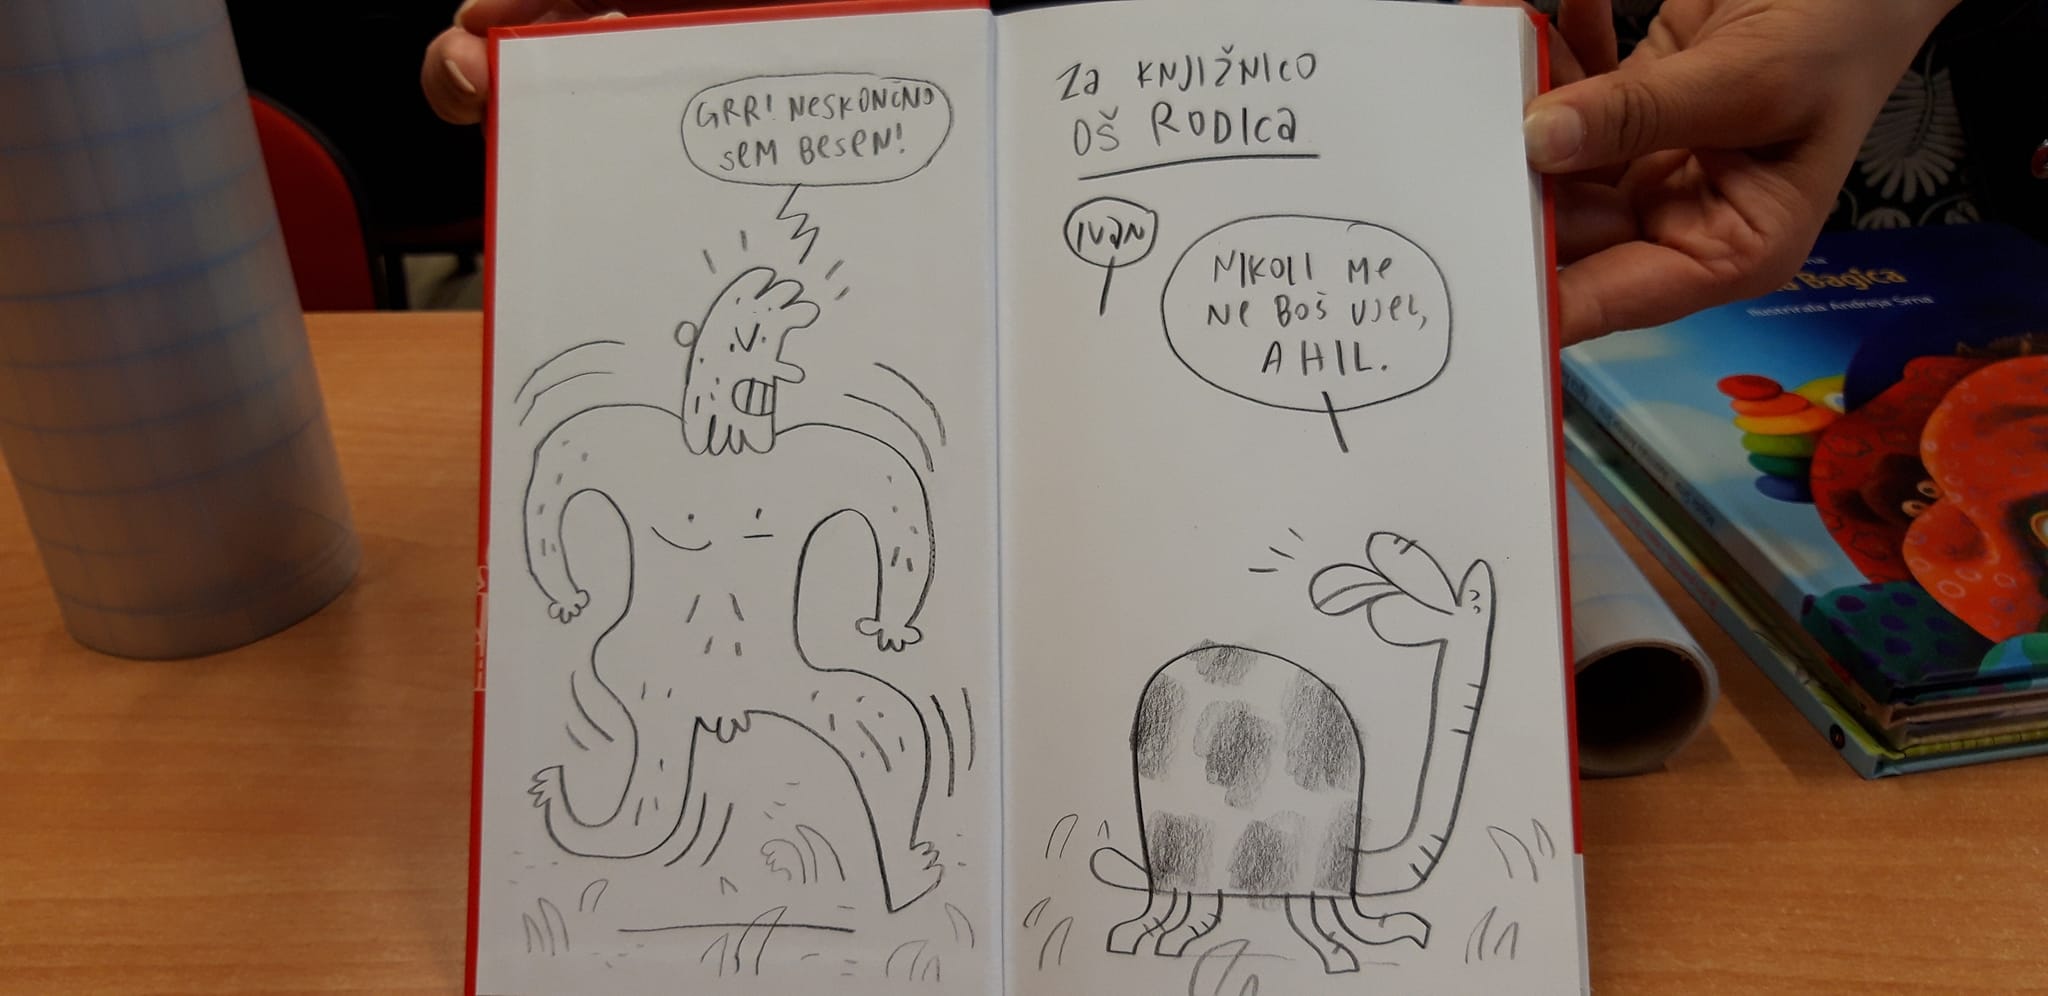 GRR! NESKONČNO
SEM BESEN!
Za KNJIŽNICO
OŠ RODICa
IVAN
NIKOLI ME
NE BOŠ UJEL,
AHIL.
Bagica
Ilustrirala Andreja Srna